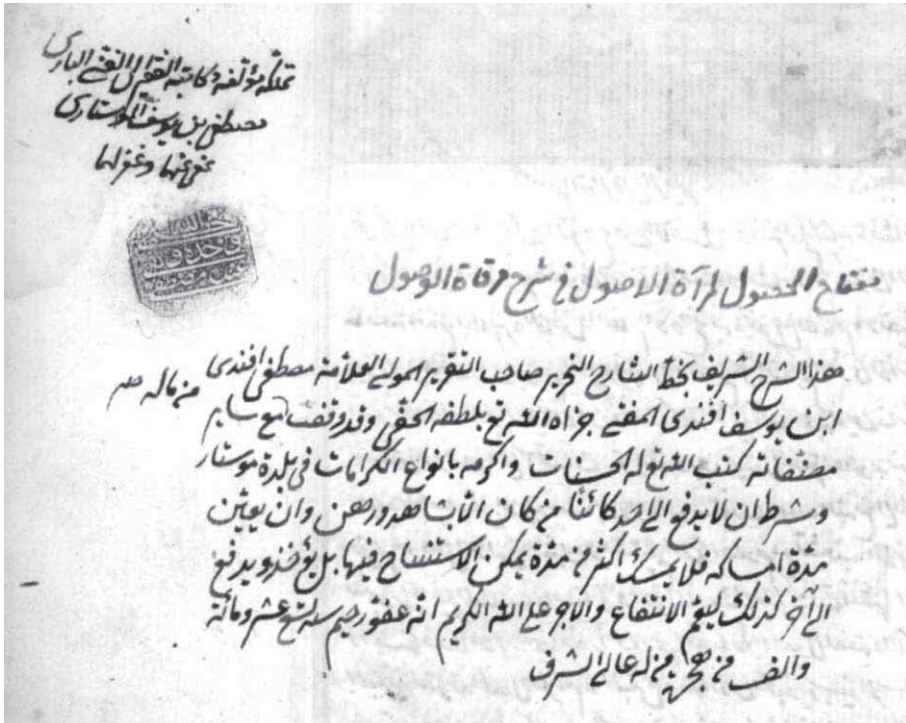 تملكه مؤلفه وكاتبه الفقير الى الغني الباري
مصطفى بن يوسف الموستاري
عفي عنهما وغفر لهما
مفتاح الحصول لمرآة الاصول في شرح مرقاة الوصول
هذا الشرح الشريف بخط الشارح النحرير صاحب التقرير المولى العلامة مصطفى افندى
ابن يوسف افندى المفتي جزاه الله تع بلطفه الحفي وقد وقفت مع ساير
من ماله
مصنفاته كتب الله تع له الحسنات واكرمه بانواع الكرامات في بلدة موستار
وشرط ان لا يدفع الى احد كائنا من كان الا بشاهد ورهن وان يعين
مدة امساكه فلا يمسك اكثر من مدة يمكن الاستنساخ فيها بل يؤخذ ويدفع
الى آخر كذلك ليتم الانتفاع والاجر على الله الكريم انه غفور رحيم سنة تسع عشر ومائة
والف من هجرة من له الشرف